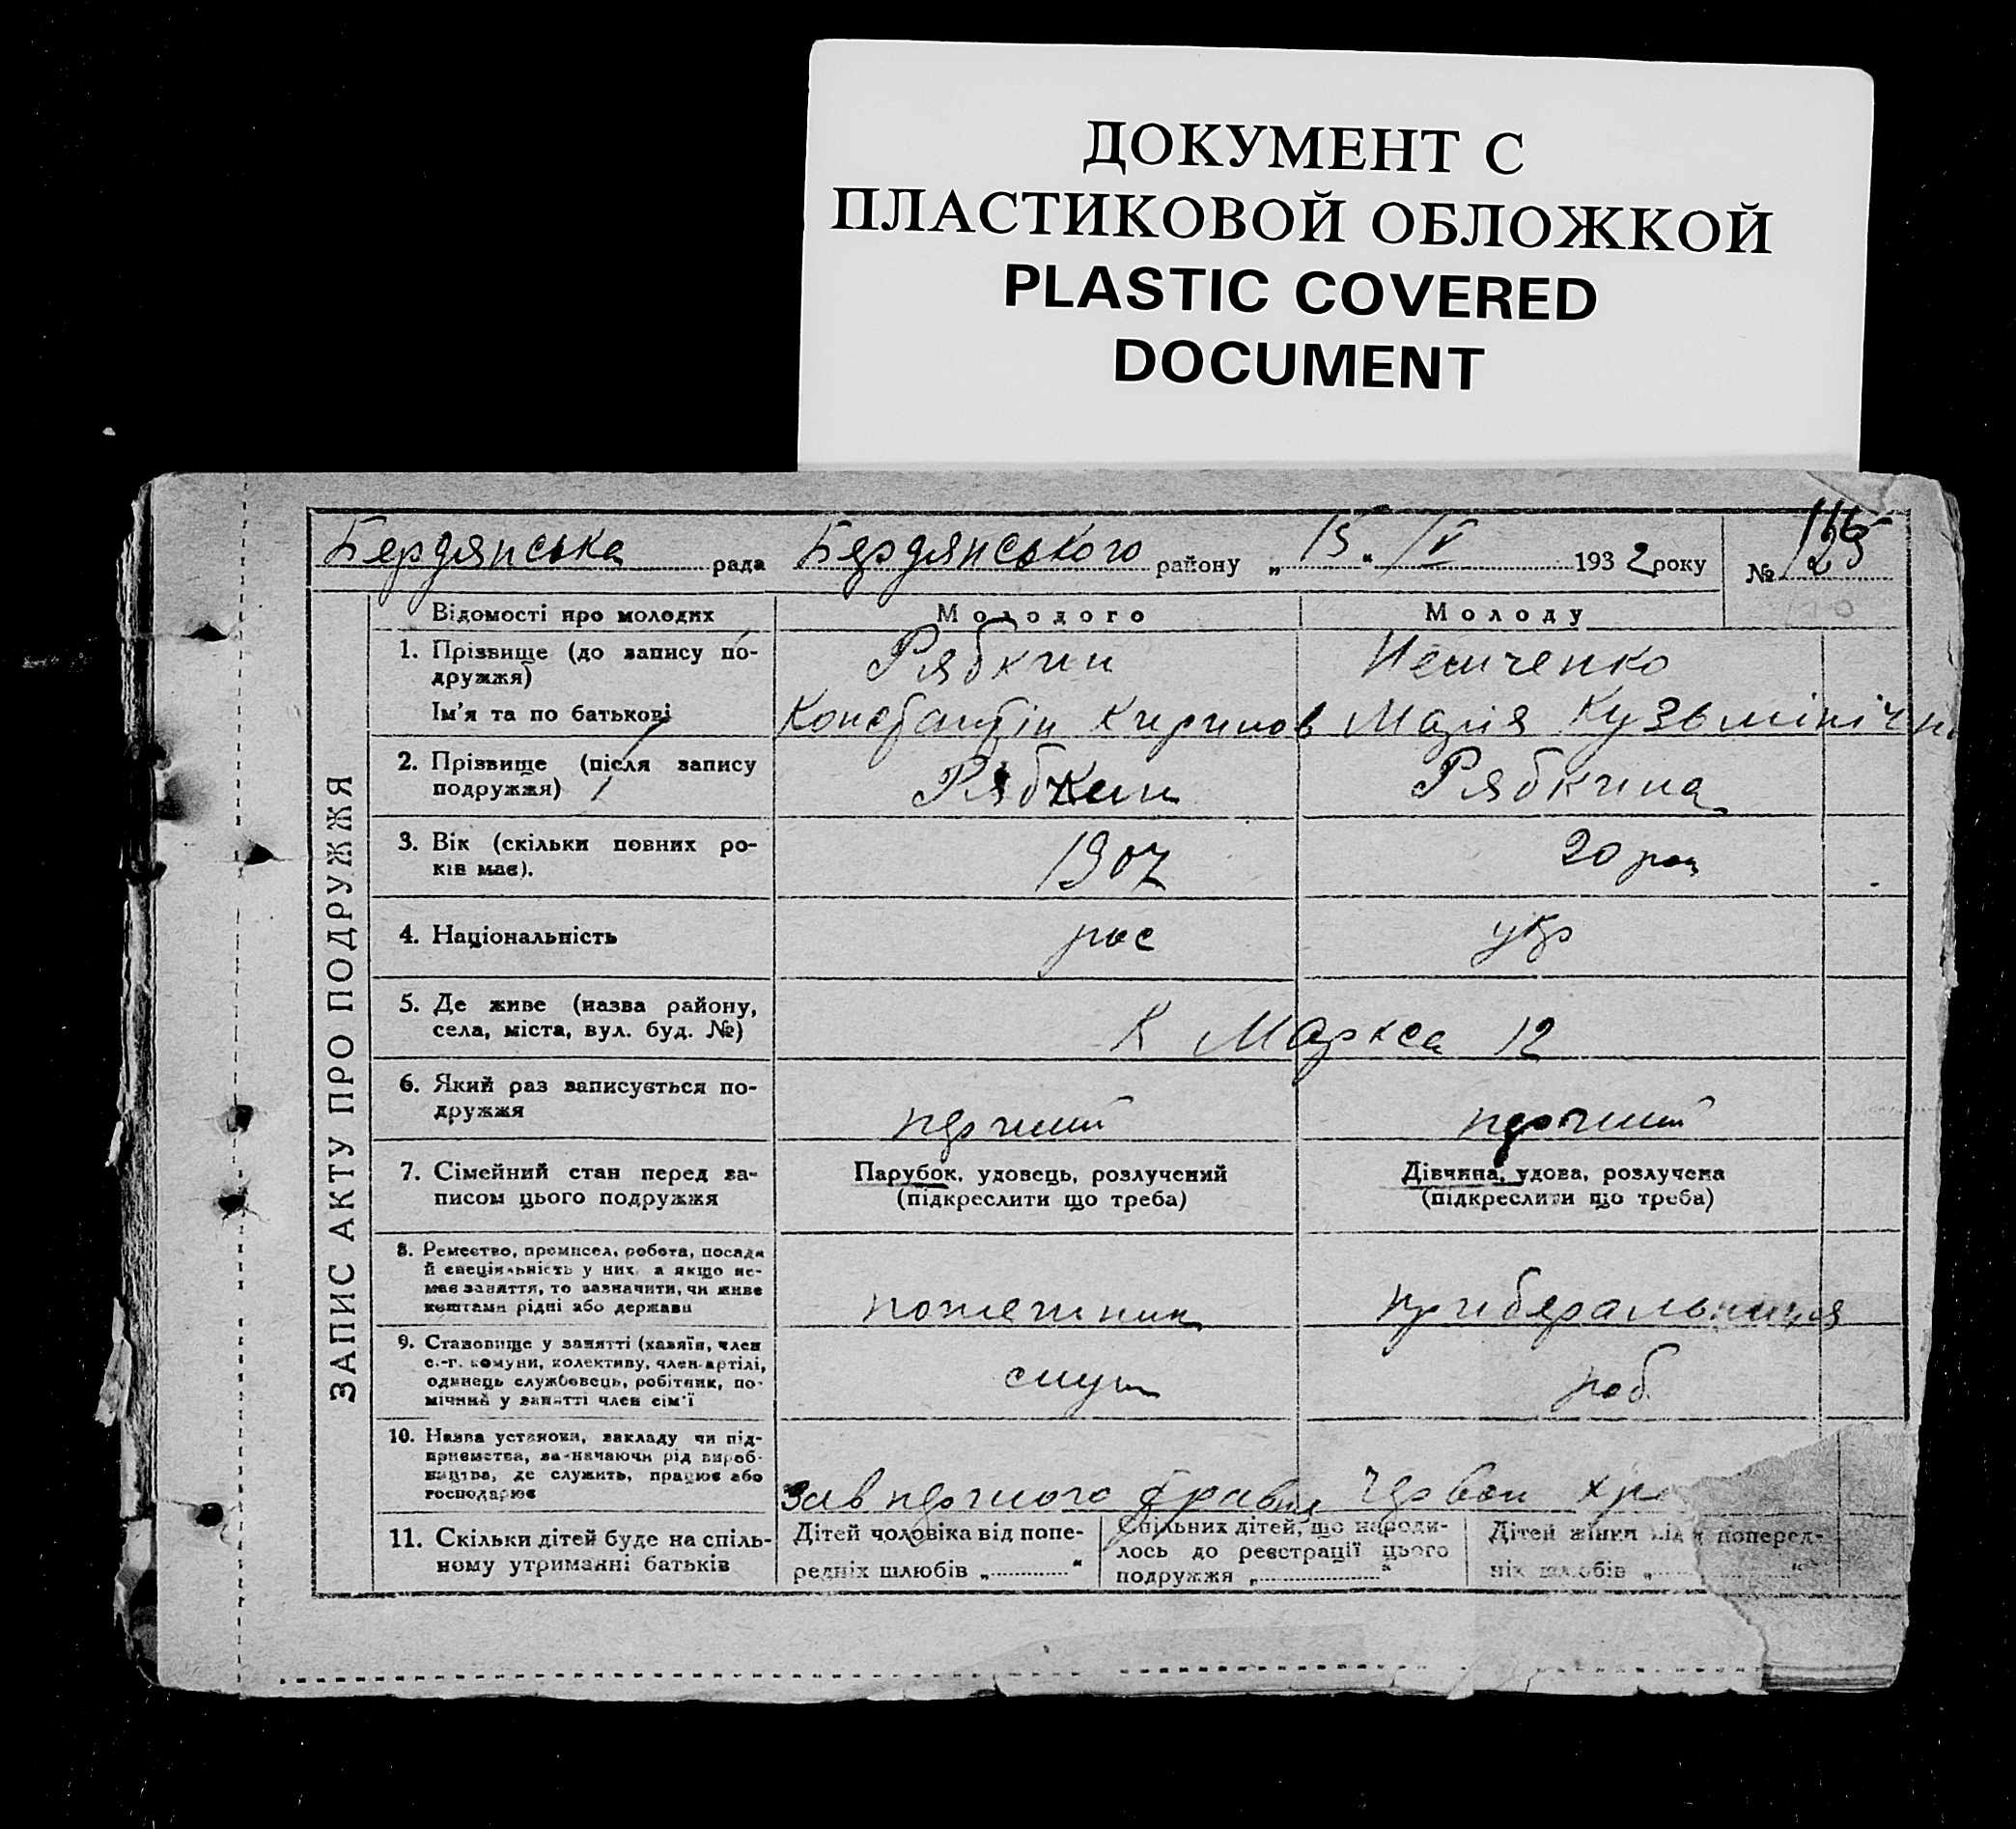 ДОКУМЕНТ С
ПЛАСТИКОВОЙ ОБЛОЖКОЙ
PLASTIC COVERED
DOCUMENT
Бердянська рада Бердянського району „ 15 “ IV 1932 року №
ЗАПИС АКТУ ПРО ПОДРУЖЖЯ
Відомості про молодих Молодого Молоду
1. Прізвище (до запису по-
дружжя) Рябкин
Ім'я та по батькові Константін Кирилов Марія Кузьмінічн
2. Прізвище (після запису
подружжя) Рябкин Рябкина
3. Вік (скільки повних ро-
ків має). 1907 20 роц
4. Національність рос укр
5. Де живе (назва району,
села, міста, вул. буд. №) К Маркса 12
6. Який раз записується по-
дружжя перший перший
7. Сімейний стан перед за-
писом цього подружжя
Парубок, удовець, розлучений
(підкреслити що треба)
Дівчина, удова, розлучена
(підкреслити що треба)
8. Ремество, промисел, робота, посада
й спеціяльність у них, а якщо не-
має заняття, то зазначити, чи живе
коштами рідні або держави
прибиральниця
9. Становище у занятті (хазяїн, член
с.-г. комуни, колективу, член артілі,
одинець службовець, робітник, по-
мічний у занятті член сім'ї
служ роб.
10. Назва установи, закладу чи під-
приємства, зазначаючи рід вироб-
ництва, де служить, працює або
господарює
Зав першого травня Червон
11. Скільки дітей буде на спіль-
ному утриманні батьків
Дітей чоловіка від попе-
редніх шлюбів „ “
Спільних дітей, що народи-
лось до реєстрації цього
подружжя „ “
Дітей жінки від поперед-
ніх шлюбів „ “